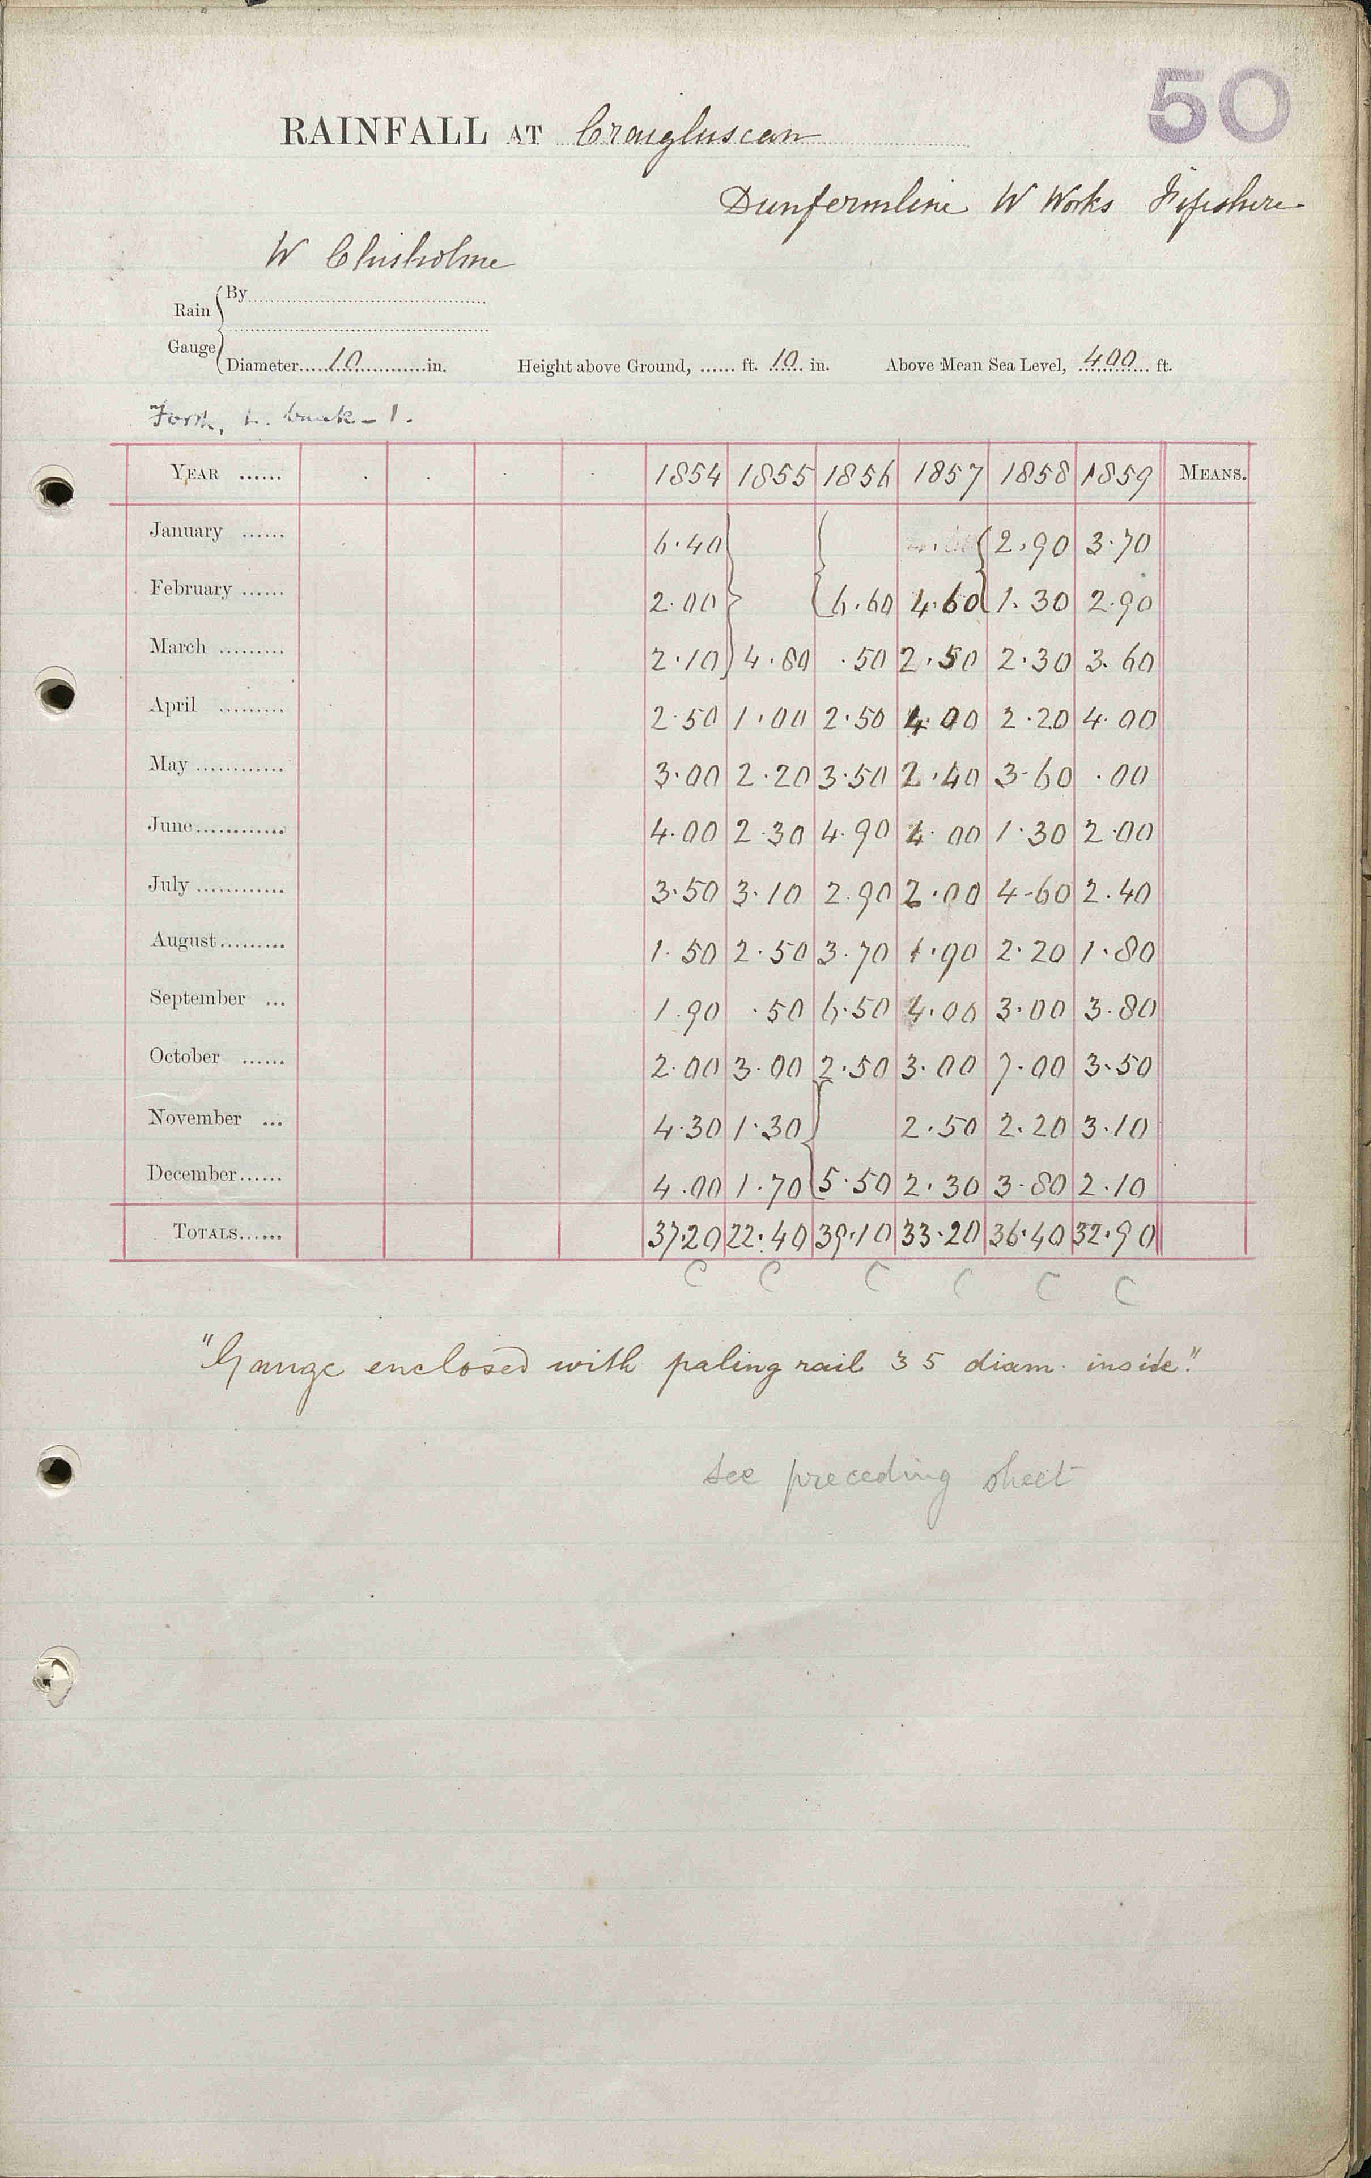 50
RAINFALL AT Craigluscan
Dunfermline W Works Fifeshire
W Chisholme
Rain Gauge { By
Diameter 10 in. Height above Ground, ...... ft. 10 in. Above Mean Sea Level, 400 ft.
Forth, L. bank - 1.
YEAR ...... 1854 1855 1856 1857 1858 1859 MEANS.
January ...... 6.40 2.90 3.70
February ...... 2.00 6.60 4.60 1.30 2.90
March ......... 2.10 4.80 .50 2.50 2.30 3.60
April ......... 2.50 1.00 2.50 4.00 2.20 4.00
May ............ 3.00 2.20 3.50 2.40 3.60 .00
June............ 4.00 2.30 4.90 4.00 1.30 2.00
July ............ 3.50 3.10 2.90 2.00 4.60 2.40
August......... 1.50 2.50 3.70 1.90 2.20 1.80
September ... 1.90 .50 6.50 4.00 3.00 3.80
October ...... 2.00 3.00 2.50 3.00 7.00 3.50
November ... 4.30 1.30 2.50 2.20 3.10
December...... 4.00 1.70 5.50 2.30 3.80 2.10
TOTALS...... 37.20 22.40 39.10 33.20 36.40 32.90
C C C C C C
"Gauge enclosed with paling rail 35 diam. inside."
see preceding sheet